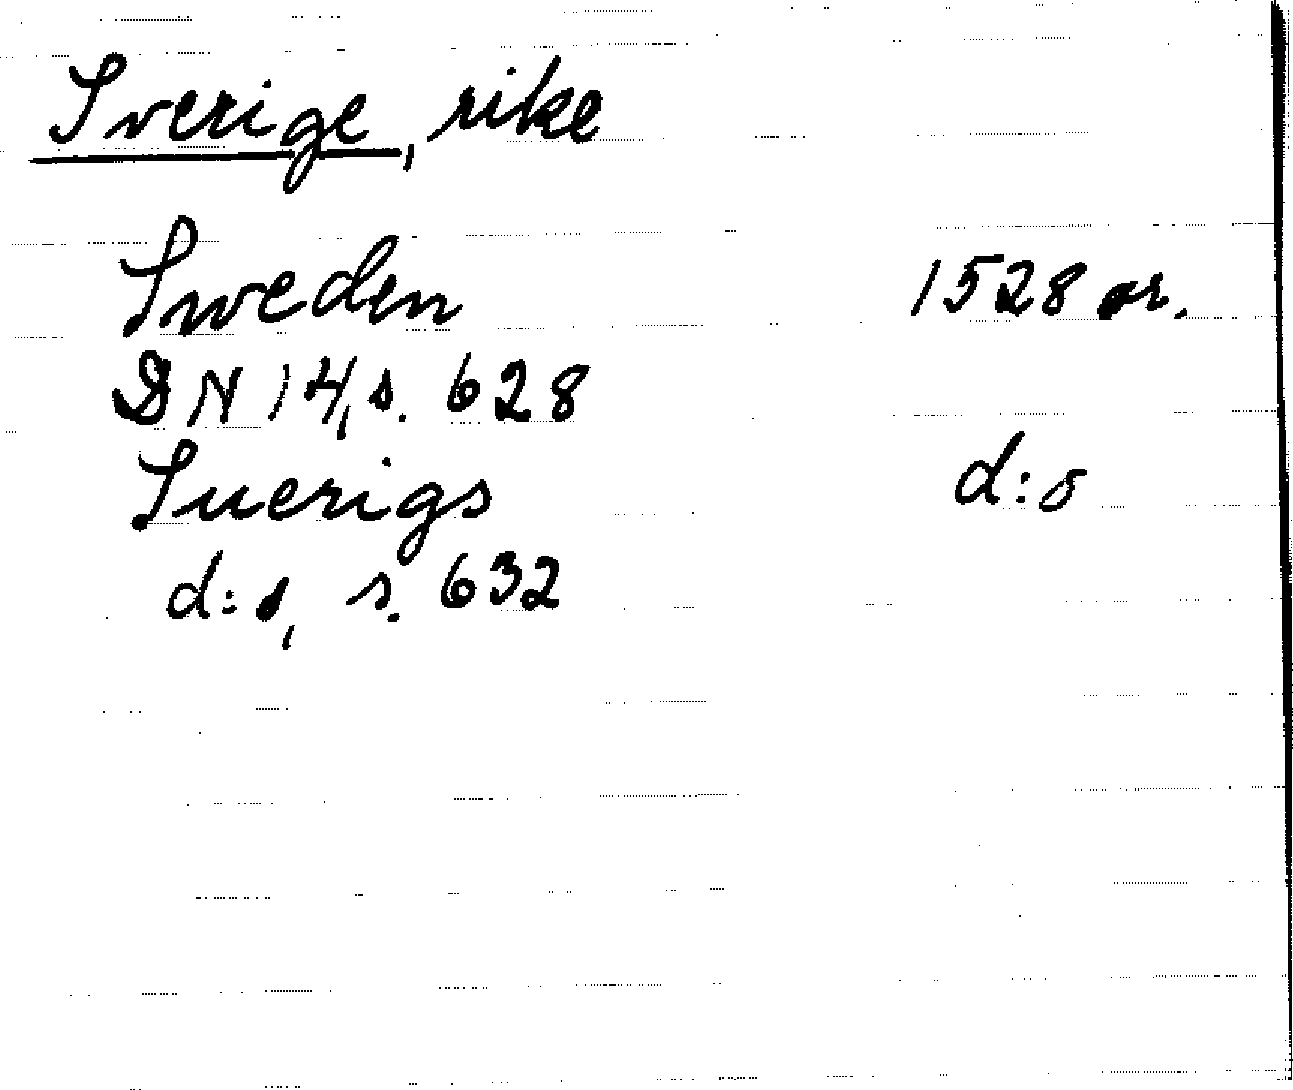 Sverige, rike
Sweden 1528 or.
DN 14, s. 628
Suerigs d:o
d:o, s. 632